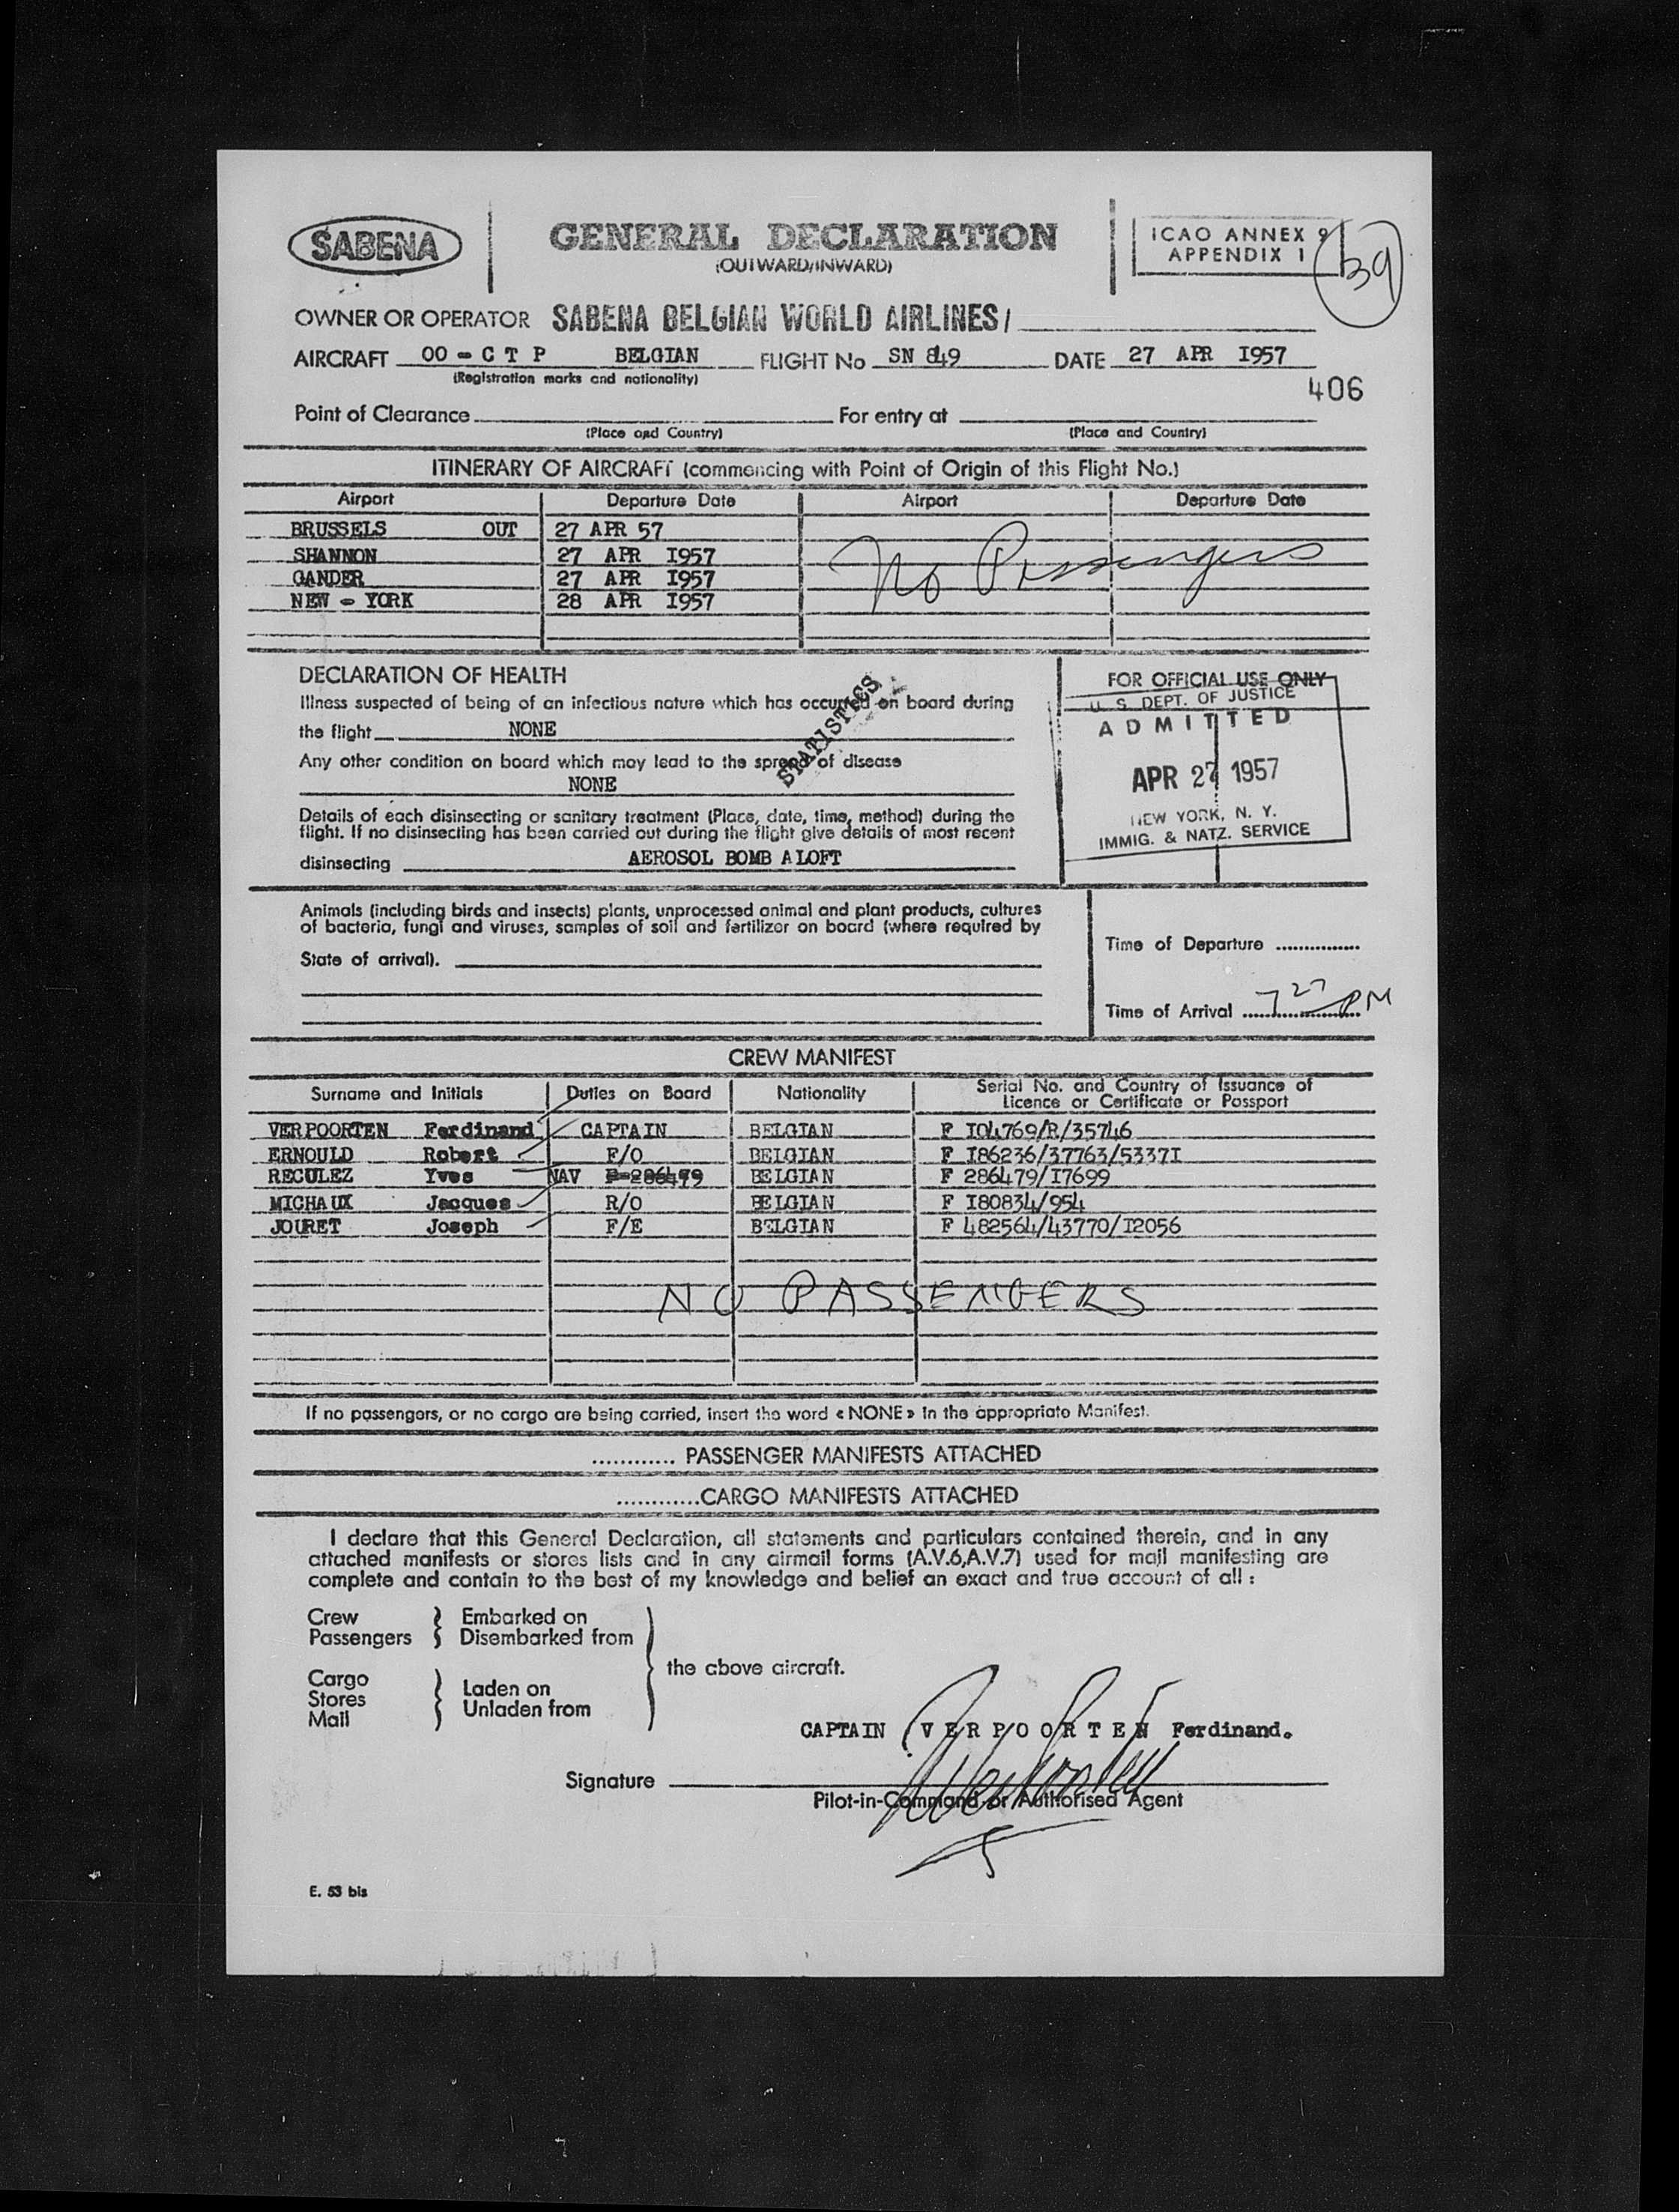 SABENA
GENERAL DECLARATION
(OUTWARD/INWARD)
ICAO ANNEX 9
APPENDIX 1
39
OWNER OR OPERATOR SABENA BELGIAN WORLD AIRLINES/
AIRCRAFT OO - C T P BELGIAN FLIGHT No SN 849 DATE 27 APR I957
(Registration marks and nationality)
406
Point of Clearance For entry at
(Place and Country) (Place and Country)
ITINERARY OF AIRCRAFT (commencing with Point of Origin of this Flight No.)
Airport Departure Date Airport Departure Date
BRUSSELS OUT 27 APR 57
SHANNON 27 APR I957
GANDER 27 APR I957
NEW - YORK 28 APR I957
No Passengers
DECLARATION OF HEALTH
Illness suspected of being of an infectious nature which has occurred on board during
the flight NONE
Any other condition on board which may lead to the spread of disease
NONE
STATISTICS
Details of each disinsecting or sanitary treatment (Place, date, time, method) during the
flight. If no disinsecting has been carried out during the flight give details of most recent
disinsecting AEROSOL BOMB ALOFT
FOR OFFICIAL USE ONLY
U. S. DEPT. OF JUSTICE
ADMITTED
APR 27 1957
NEW YORK, N. Y.
IMMIG. & NATZ. SERVICE
Animals (including birds and insects) plants, unprocessed animal and plant products, cultures
of bacteria, fungi and viruses, samples of soil and fertilizer on board (where required by
State of arrival).
Time of Departure ...............
Time of Arrival 7 27 PM
CREW MANIFEST
Surname and Initials Duties on Board Nationality Serial No. and Country of Issuance of
Licence or Certificate or Passport
VERPOORTEN Ferdinand CAPTAIN BELGIAN F I04769/R/35746
ERNOULD Robert F/O BELGIAN F I86236/37763/5337I
RECULEZ Yves NAV F-286479 BELGIAN F 286479/I7699
MICHAUX Jacques R/O BELGIAN F I80834/954
JOURET Joseph F/E BELGIAN F 482564/43770/I2056
NO PASSENGERS
If no passengers, or no cargo are being carried, insert the word « NONE » in the appropriate Manifest.
............ PASSENGER MANIFESTS ATTACHED
............CARGO MANIFESTS ATTACHED
I declare that this General Declaration, all statements and particulars contained therein, and in any
attached manifests or stores lists and in any airmail forms (A.V.6,A.V.7) used for mail manifesting are
complete and contain to the best of my knowledge and belief an exact and true account of all :
Crew Embarked on
Passengers Disembarked from
the above aircraft.
Cargo
Stores Laden on
Mail Unladen from
CAPTAIN V E R P O O R T E N Ferdinand.
Signature VerPoorten
Pilot-in-Command or Authorised Agent
E. 53 bis